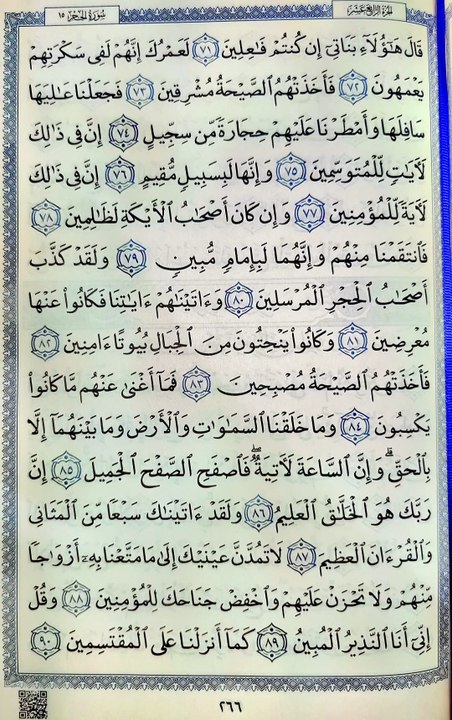 سُورَةُ الحِجْرِ ١٥
الجُزْءُ الرَّابِعَ عَشَرَ
قَالَ هَٰٓؤُلَآءِ بَنَاتِىٓ إِن كُنتُمْ فَٰعِلِينَ ٧١ لَعَمْرُكَ إِنَّهُمْ لَفِى سَكْرَتِهِمْ
يَعْمَهُونَ ٧٢ فَأَخَذَتْهُمُ ٱلصَّيْحَةُ مُشْرِقِينَ ٧٣ فَجَعَلْنَا عَٰلِيَهَا
سَافِلَهَا وَأَمْطَرْنَا عَلَيْهِمْ حِجَارَةً مِّن سِجِّيلٍ ٧٤ إِنَّ فِى ذَٰلِكَ
لَءَايَٰتٍ لِّلْمُتَوَسِّمِينَ ٧٥ وَإِنَّهَا لَبِسَبِيلٍ مُّقِيمٍ ٧٦ إِنَّ فِى ذَٰلِكَ
لَءَايَةً لِّلْمُؤْمِنِينَ ٧٧ وَإِن كَانَ أَصْحَٰبُ ٱلْأَيْكَةِ لَظَٰلِمِينَ ٧٨
فَٱنتَقَمْنَا مِنْهُمْ وَإِنَّهُمَا لَبِإِمَامٍ مُّبِينٍ ٧٩ وَلَقَدْ كَذَّبَ
أَصْحَٰبُ ٱلْحِجْرِ ٱلْمُرْسَلِينَ ٨٠ وَءَاتَيْنَٰهُمْ ءَايَٰتِنَا فَكَانُوا۟ عَنْهَا
مُعْرِضِينَ ٨١ وَكَانُوا۟ يَنْحِتُونَ مِنَ ٱلْجِبَالِ بُيُوتًا ءَامِنِينَ ٨٢
فَأَخَذَتْهُمُ ٱلصَّيْحَةُ مُصْبِحِينَ ٨٣ فَمَآ أَغْنَىٰ عَنْهُم مَّا كَانُوا۟
يَكْسِبُونَ ٨٤ وَمَا خَلَقْنَا ٱلسَّمَٰوَٰتِ وَٱلْأَرْضَ وَمَا بَيْنَهُمَآ إِلَّا
بِٱلْحَقِّ ۗ وَإِنَّ ٱلسَّاعَةَ لَءَاتِيَةٌ ۖ فَٱصْفَحِ ٱلصَّفْحَ ٱلْجَمِيلَ ٨٥ إِنَّ
رَبَّكَ هُوَ ٱلْخَلَّٰقُ ٱلْعَلِيمُ ٨٦ وَلَقَدْ ءَاتَيْنَٰكَ سَبْعًا مِّنَ ٱلْمَثَانِى
وَٱلْقُرْءَانَ ٱلْعَظِيمَ ٨٧ لَا تَمُدَّنَّ عَيْنَيْكَ إِلَىٰ مَا مَتَّعْنَا بِهِۦٓ أَزْوَٰجًا
مِّنْهُمْ وَلَا تَحْزَنْ عَلَيْهِمْ وَٱخْفِضْ جَنَاحَكَ لِلْمُؤْمِنِينَ ٨٨ وَقُلْ
إِنِّىٓ أَنَا ٱلنَّذِيرُ ٱلْمُبِينُ ٨٩ كَمَآ أَنزَلْنَا عَلَى ٱلْمُقْتَسِمِينَ ٩٠
٢٦٦